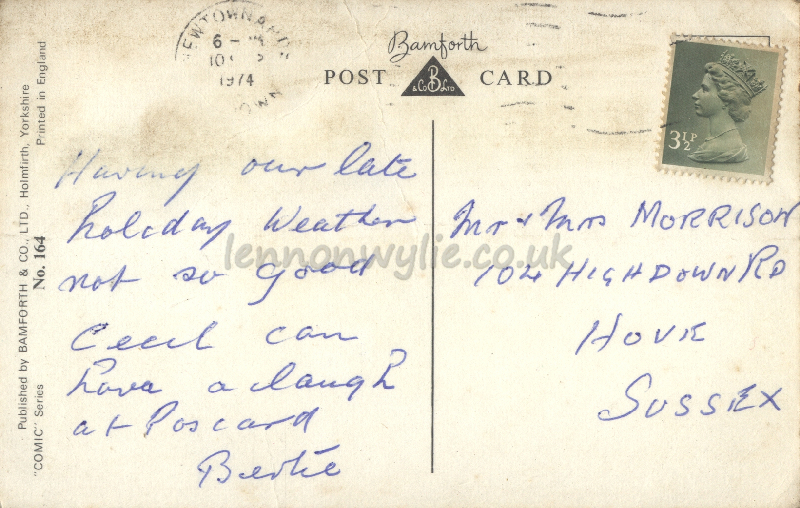 NEWTOWNARDS
6 - PM
10
1974
DOWN
Bamforth
POST CARD
B
& Co LTD
3½P
Published by BAMFORTH & CO., LTD., Holmfirth, Yorkshire
Printed in England
"COMIC" Series No. 164
Having our late
holiday Weather
not so good
Cecil can
have a laugh
at Poscard
Bertie
Mr & Mrs MORRISON
104 HIGHDOWN RD
HOVE
SUSSEX
lennonwylie.co.uk